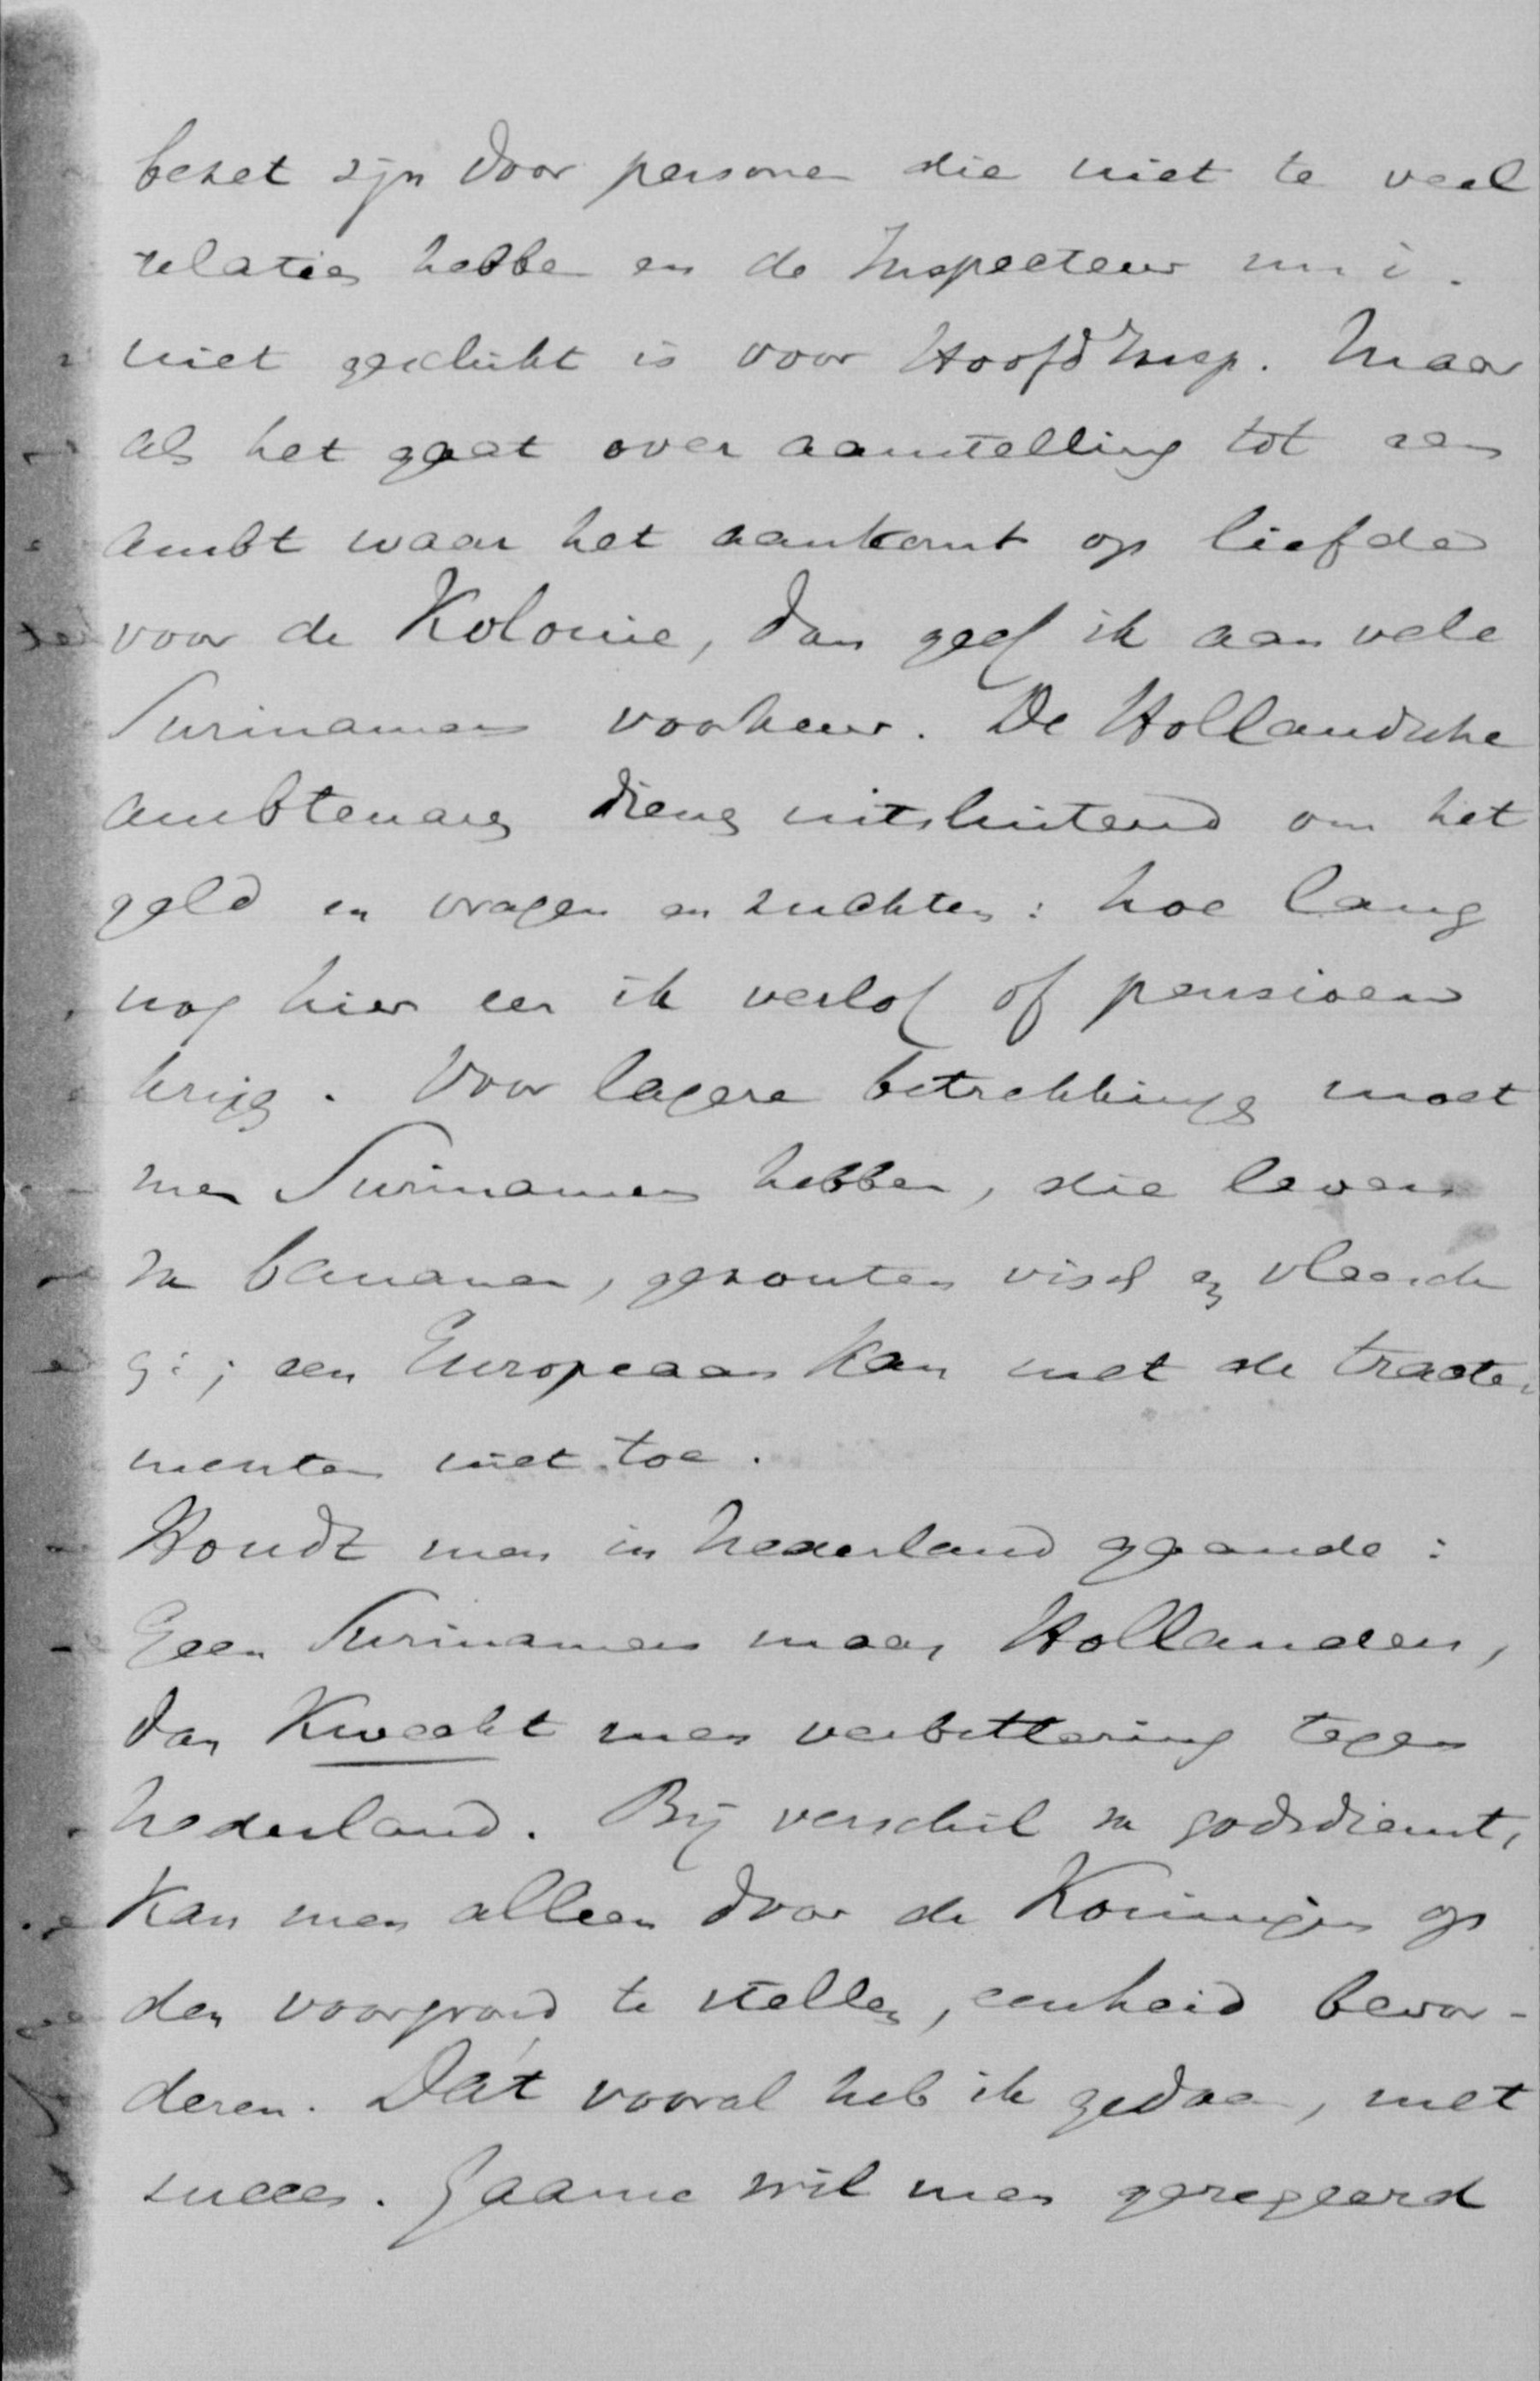 bezet zijn door personen die niet te veel
relaties hebben en de Inspecteur m i.
niet geschikt is voor Hoofd Insp. Maar
als het gaat over aanstelling tot een
ambt waar het aankomt op liefde
voor de Kolonie, dan geef ik aan vele
Surinamers voorkeur. De Hollandsche
ambtenaren dienen uitsluitend om het
geld en vragen en zuchten: hoe lang
nog hier eer ik verlof of pensioen
krijg. Voor lagere betrekkingen moet
men Surinamers hebben, die leven
van bananen, gezouten visch en vleesch
; een Europeaan kan met de tracte-
menten niet toe.
Houdt men in Nederland gaande:
Geen Surinamers maar Hollanders,
dan kweekt men verbittering tegen
Nederland. Bij verschil van godsdienst,
kan men alleen door de Koningin op
den voorgrond te stellen, eenheid bevor-
deren. Dát vooral heb ik gedaan, met
succes. Gaarne wil men geregeerd